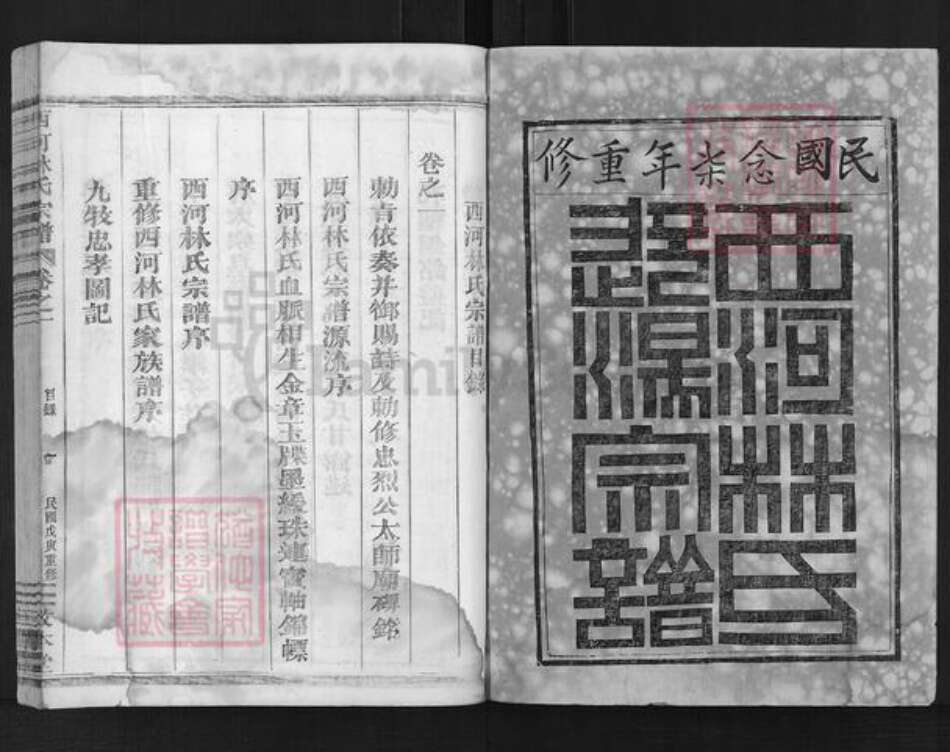 民國念柒年重修
西河林氏
宗譜
西河林氏宗譜目錄
卷之一
勅旨依奏并御賜詩及勅修忠烈公太師廟碑銘
西河林氏宗譜源流序
西河林氏血脈相生金章玉牒墨綬珠連寶軸錦幖
序
西河林氏宗譜序
重修西河林氏家族譜序
九牧忠孝圖記
西河林氏宗譜 卷之一 目錄 民國戊寅重修 敦本堂